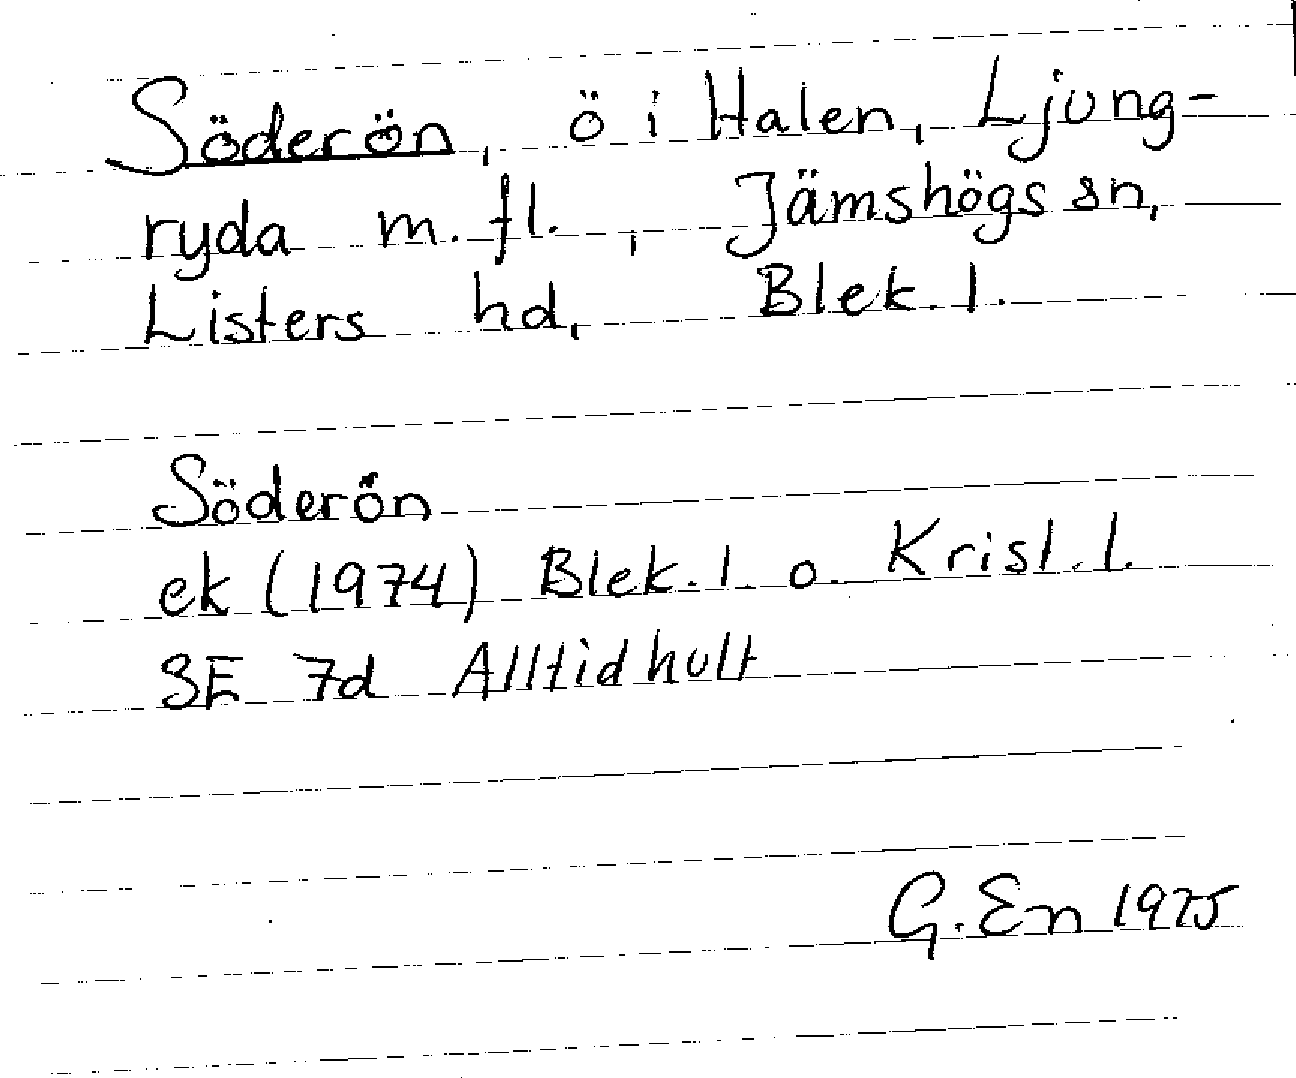 Söderön, ö i Halen, Ljung-
ryda m. fl., Jämshögs sn,
Listers hd, Blek. l.
Söderön
ek (1974) Blek. l. o. Krist. l.
3E 7d Alltidhult
G. En 1975